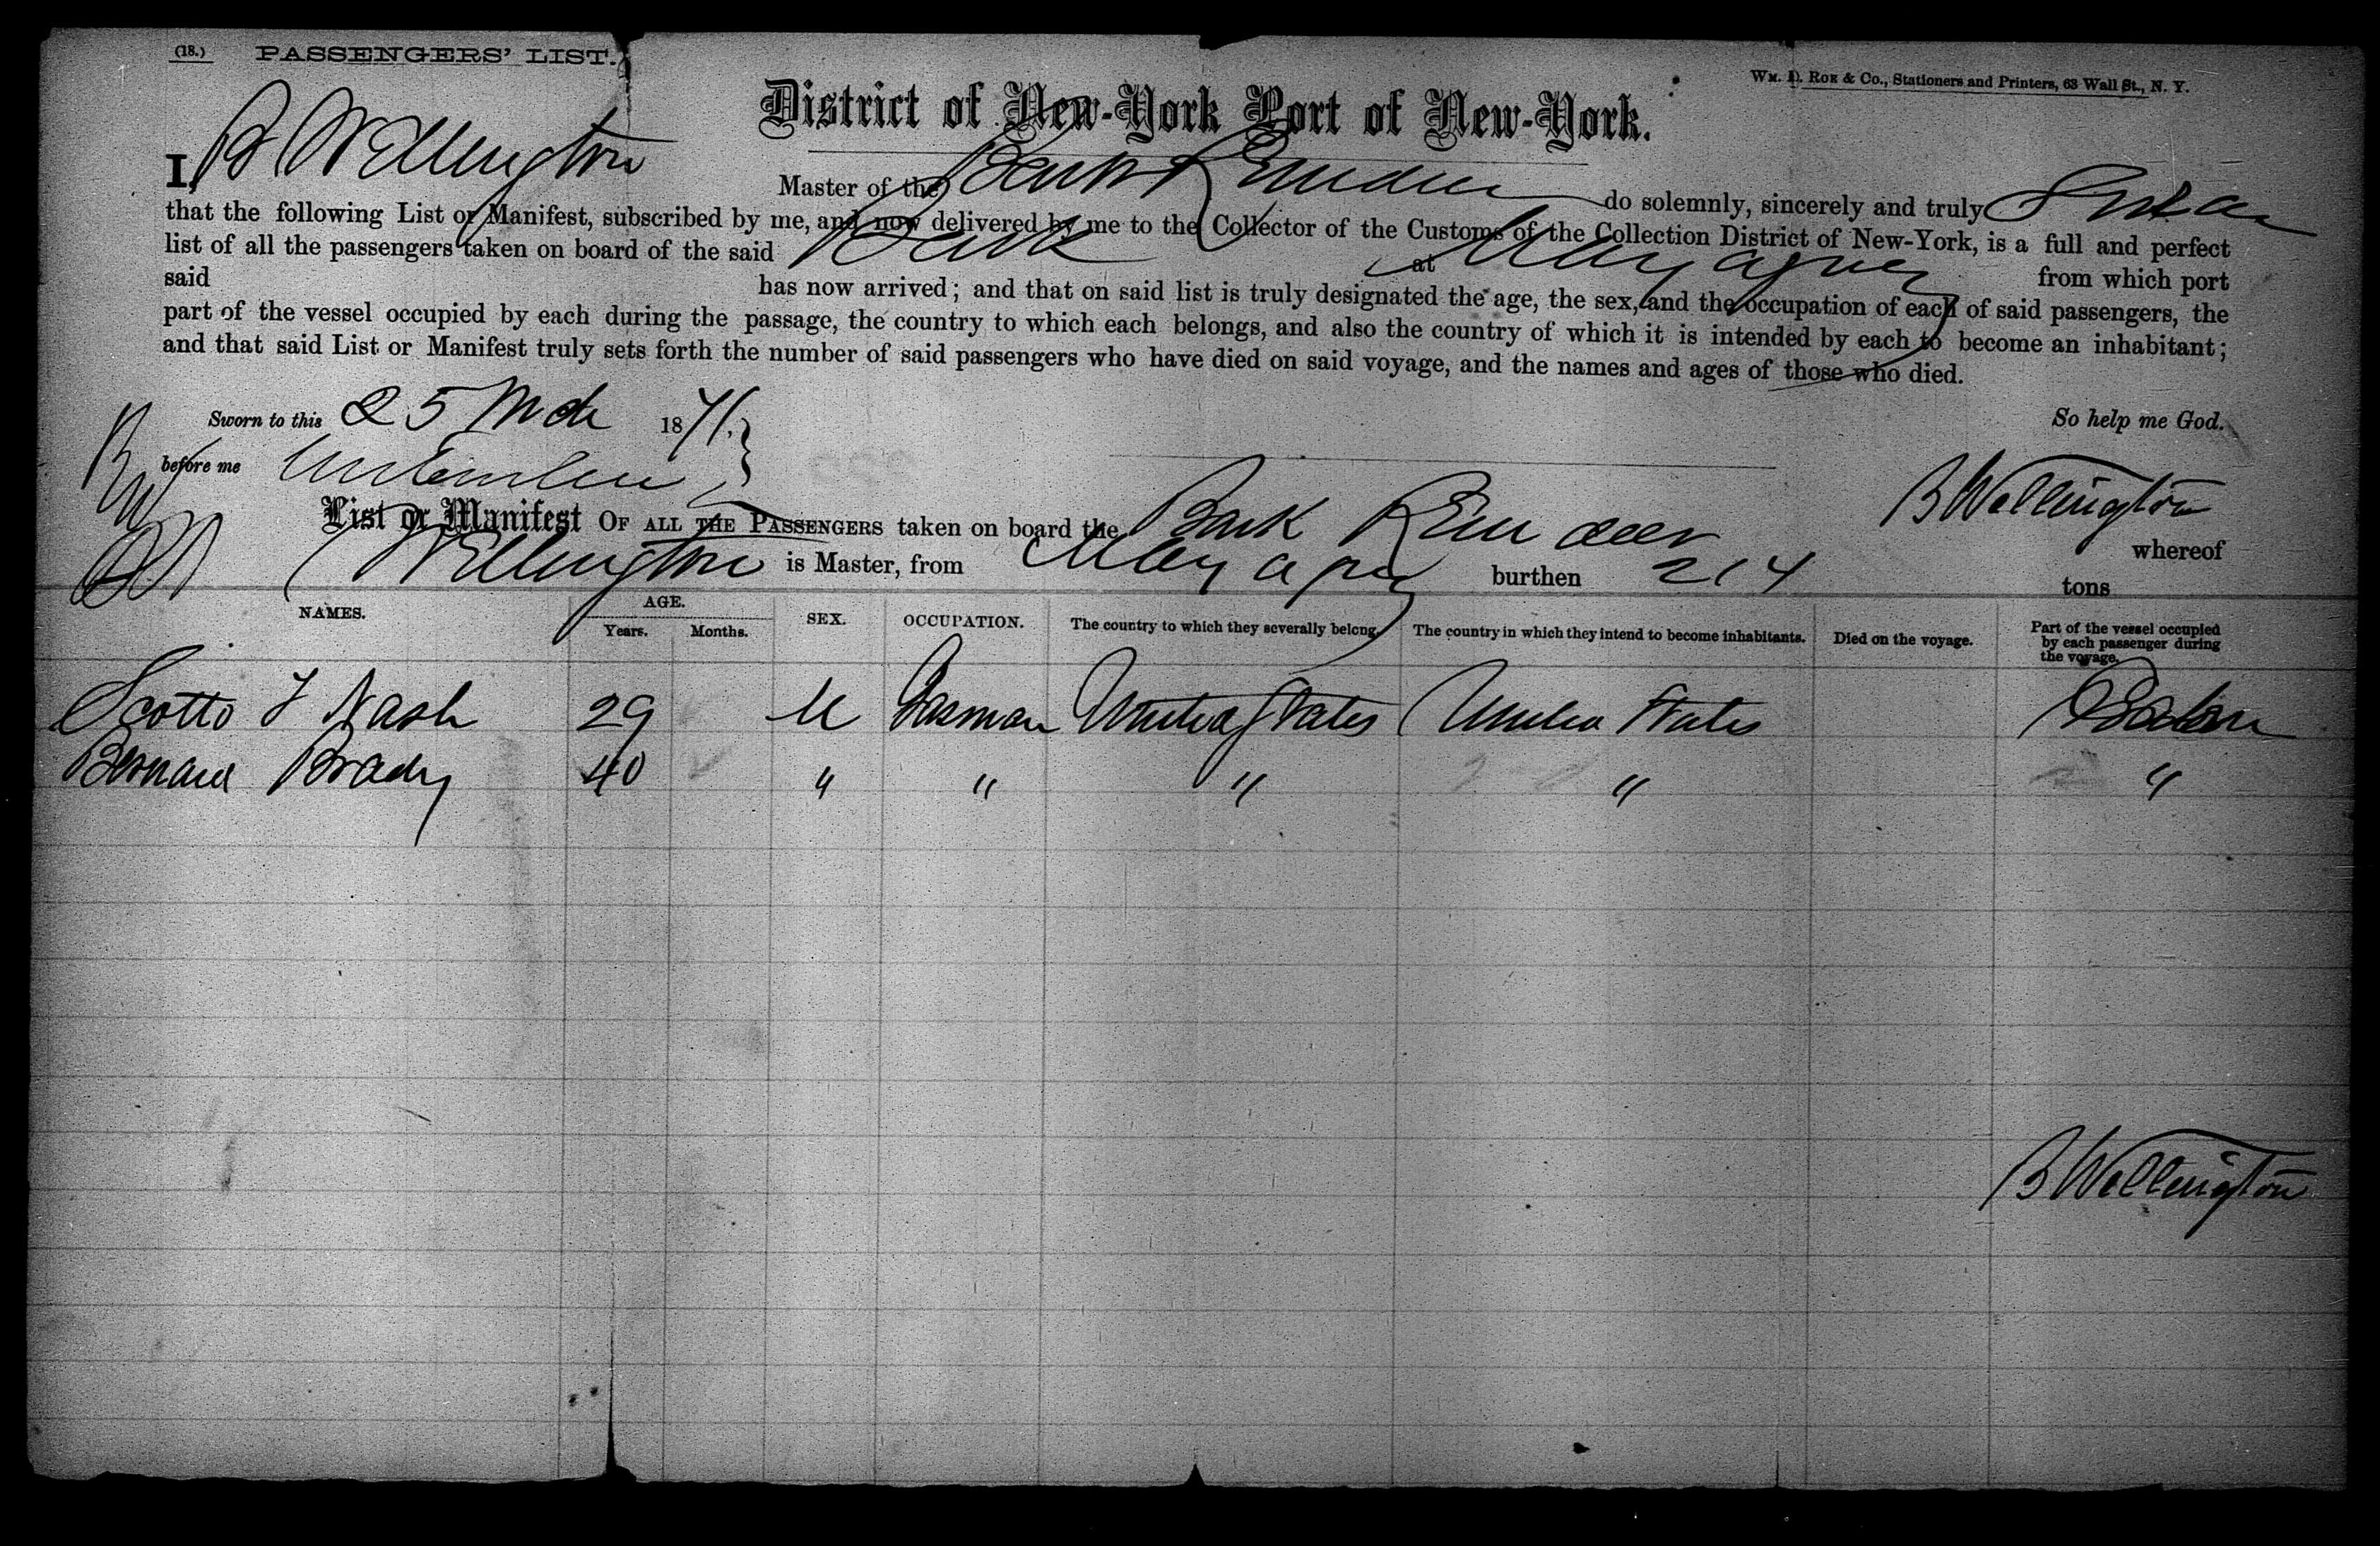 (18.) PASSENGERS' LIST.
Wm. D. Roe & Co., Stationers and Printers, 63 Wall St., N. Y.
District of New-York Port of New-York.
I, B Wellington Master of the Bark Reindeer do solemnly, sincerely and truly Swear
that the following List or Manifest, subscribed by me, and now delivered by me to the Collector of the Customs of the Collection District of New-York, is a full and perfect
list of all the passengers taken on board of the said Bark at Mayaguez from which port
said has now arrived; and that on said list is truly designated the age, the sex, and the occupation of each of said passengers, the
part of the vessel occupied by each during the passage, the country to which each belongs, and also the country of which it is intended by each to become an inhabitant;
and that said List or Manifest truly sets forth the number of said passengers who have died on said voyage, and the names and ages of those who died.
Sworn to this 25 Mch 1871. So help me God.
before me
B Wellington
List or Manifest OF ALL THE PASSENGERS taken on board the Bark Reindeer whereof
Wellington is Master, from Mayaguez burthen 214 tons
NAMES. AGE. Years. Months. SEX. OCCUPATION. The country to which they severally belong. The country in which they intend to become inhabitants. Died on the voyage. Part of the vessel occupied by each passenger during the voyage.
Scotto F Nash 29 M United States United States
Bernard Brady 40 " " " " "
B Wellington